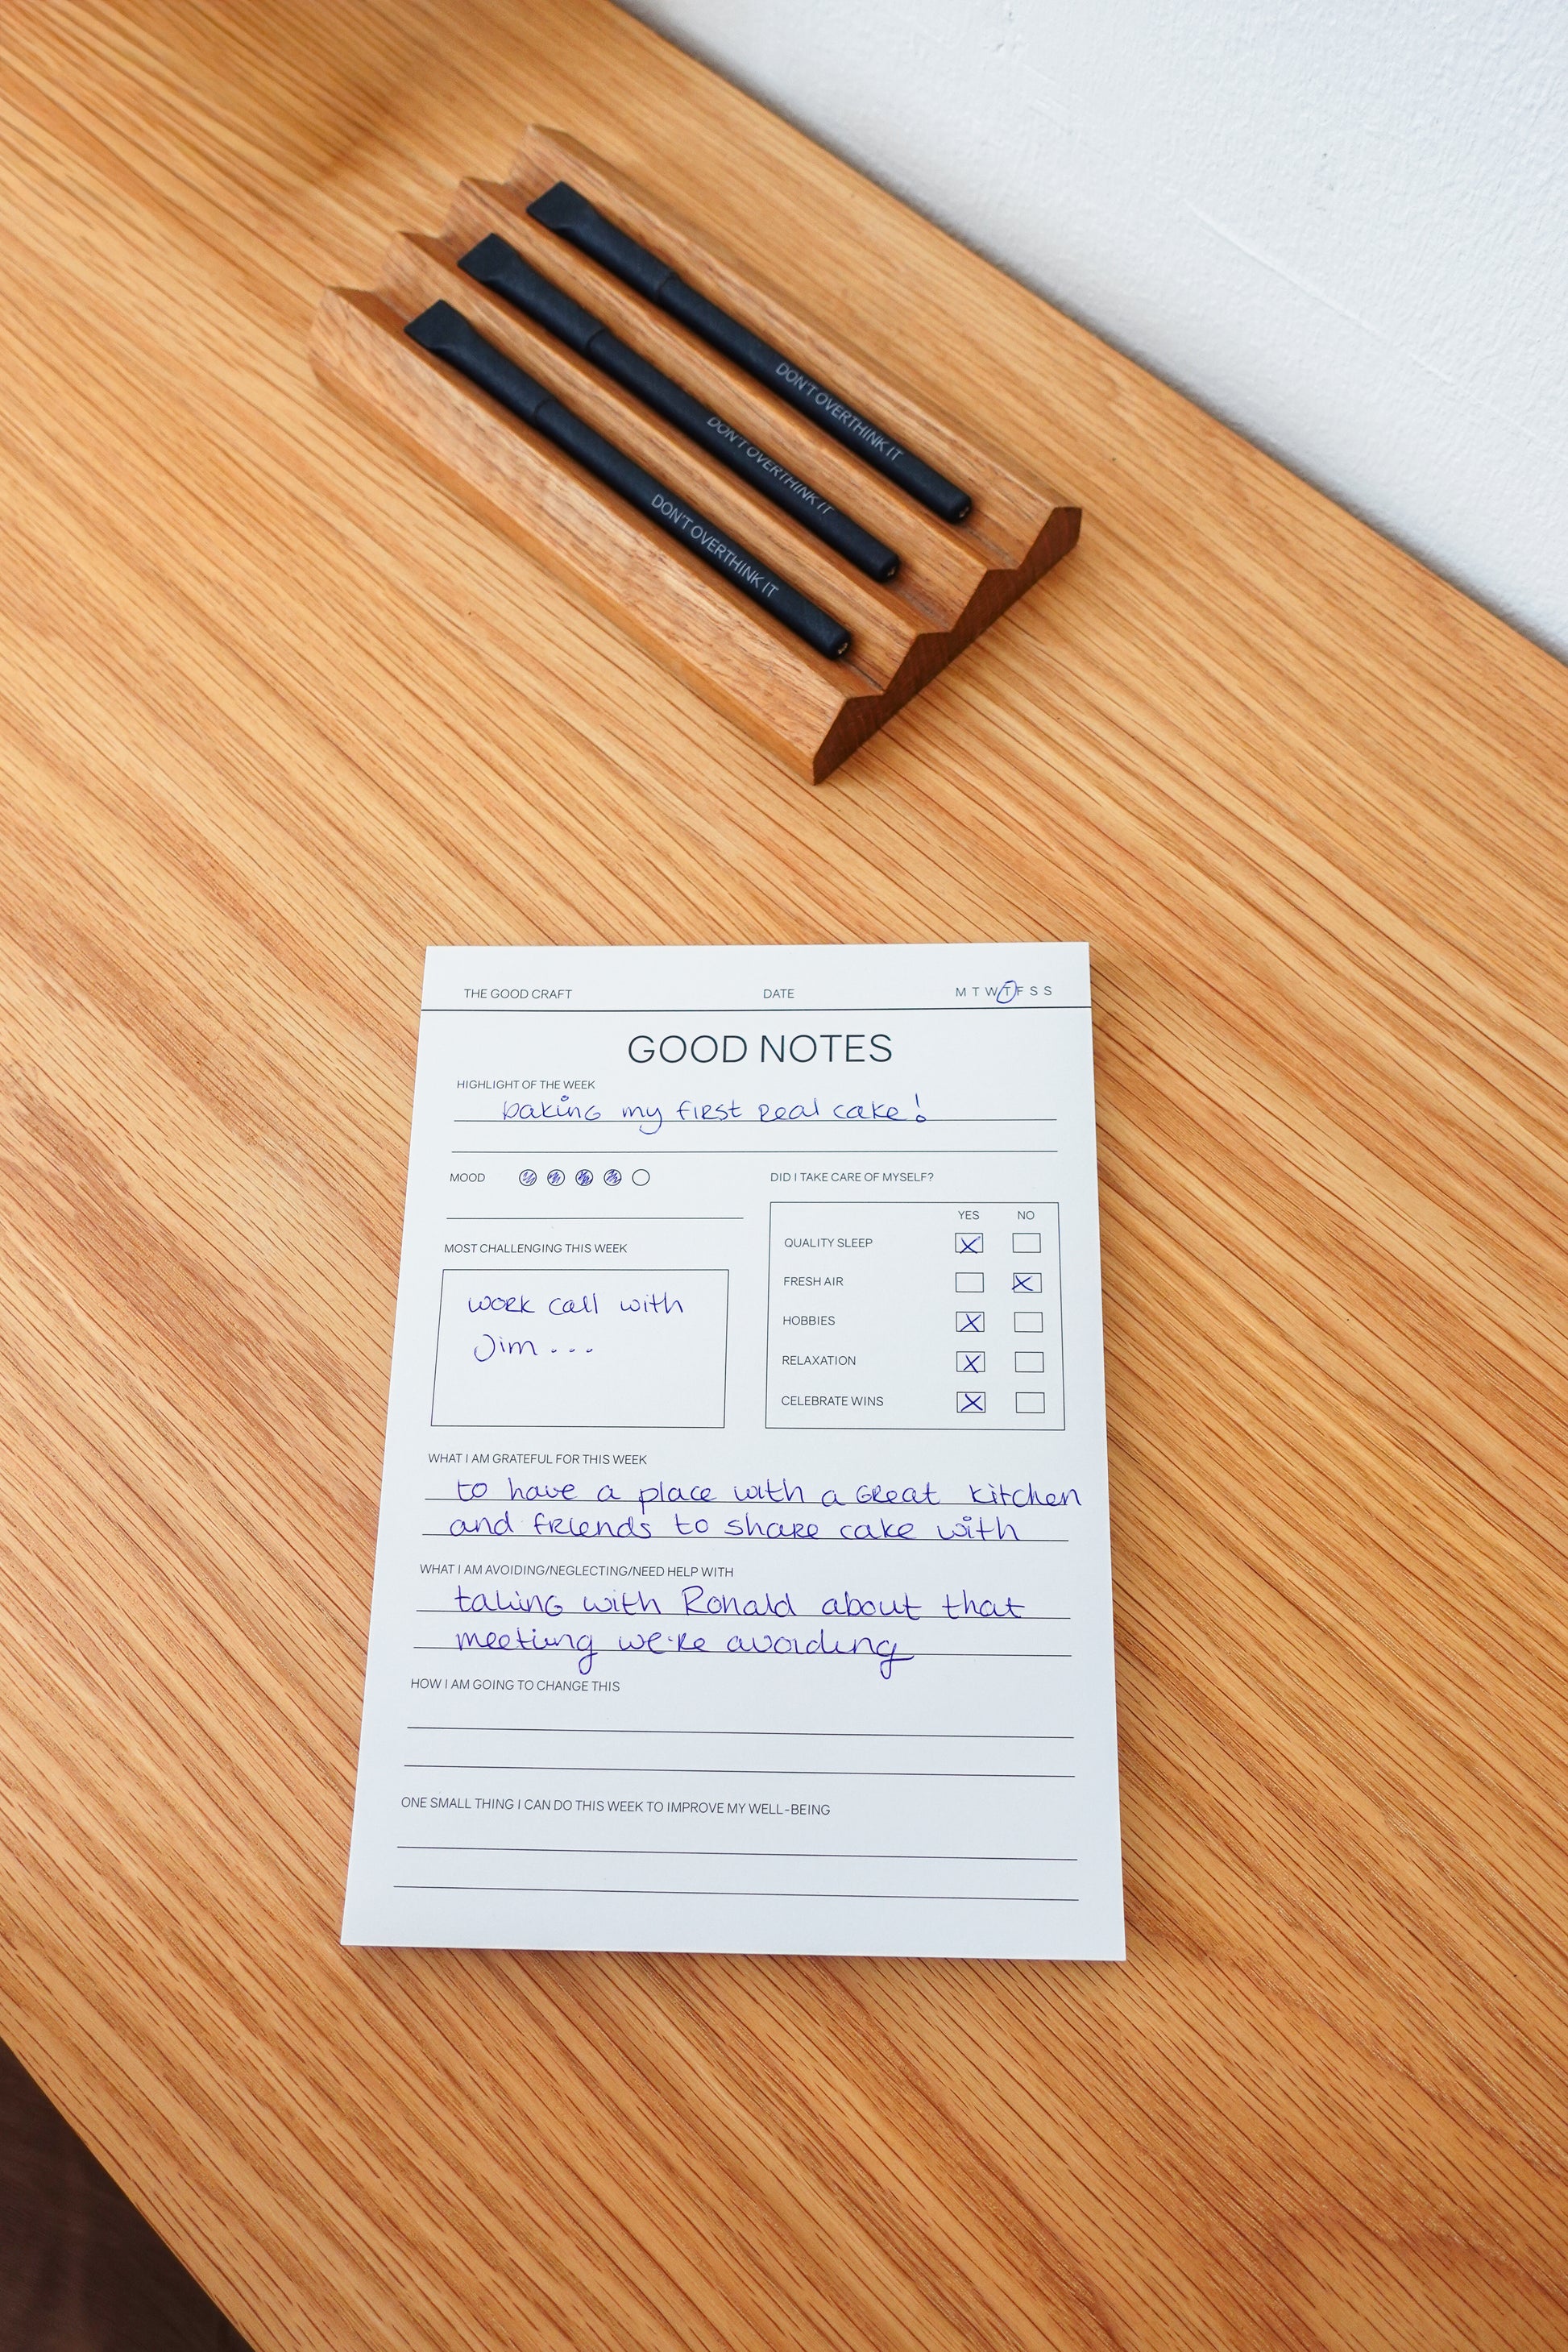 DON'T OVERTHINK IT
DON'T OVERTHINK IT
DON'T OVERTHINK IT
THE GOOD CRAFT DATE M T W T F S S
GOOD NOTES
HIGHLIGHT OF THE WEEK
baking my first real cake!
MOOD
DID I TAKE CARE OF MYSELF?
YES NO
QUALITY SLEEP
FRESH AIR
HOBBIES
RELAXATION
CELEBRATE WINS
MOST CHALLENGING THIS WEEK
work call with
Jim...
WHAT I AM GRATEFUL FOR THIS WEEK
to have a place with a great kitchen
and friends to share cake with
WHAT I AM AVOIDING/NEGLECTING/NEED HELP WITH
talking with Ronald about that
meeting we're avoiding
HOW I AM GOING TO CHANGE THIS
ONE SMALL THING I CAN DO THIS WEEK TO IMPROVE MY WELL-BEING